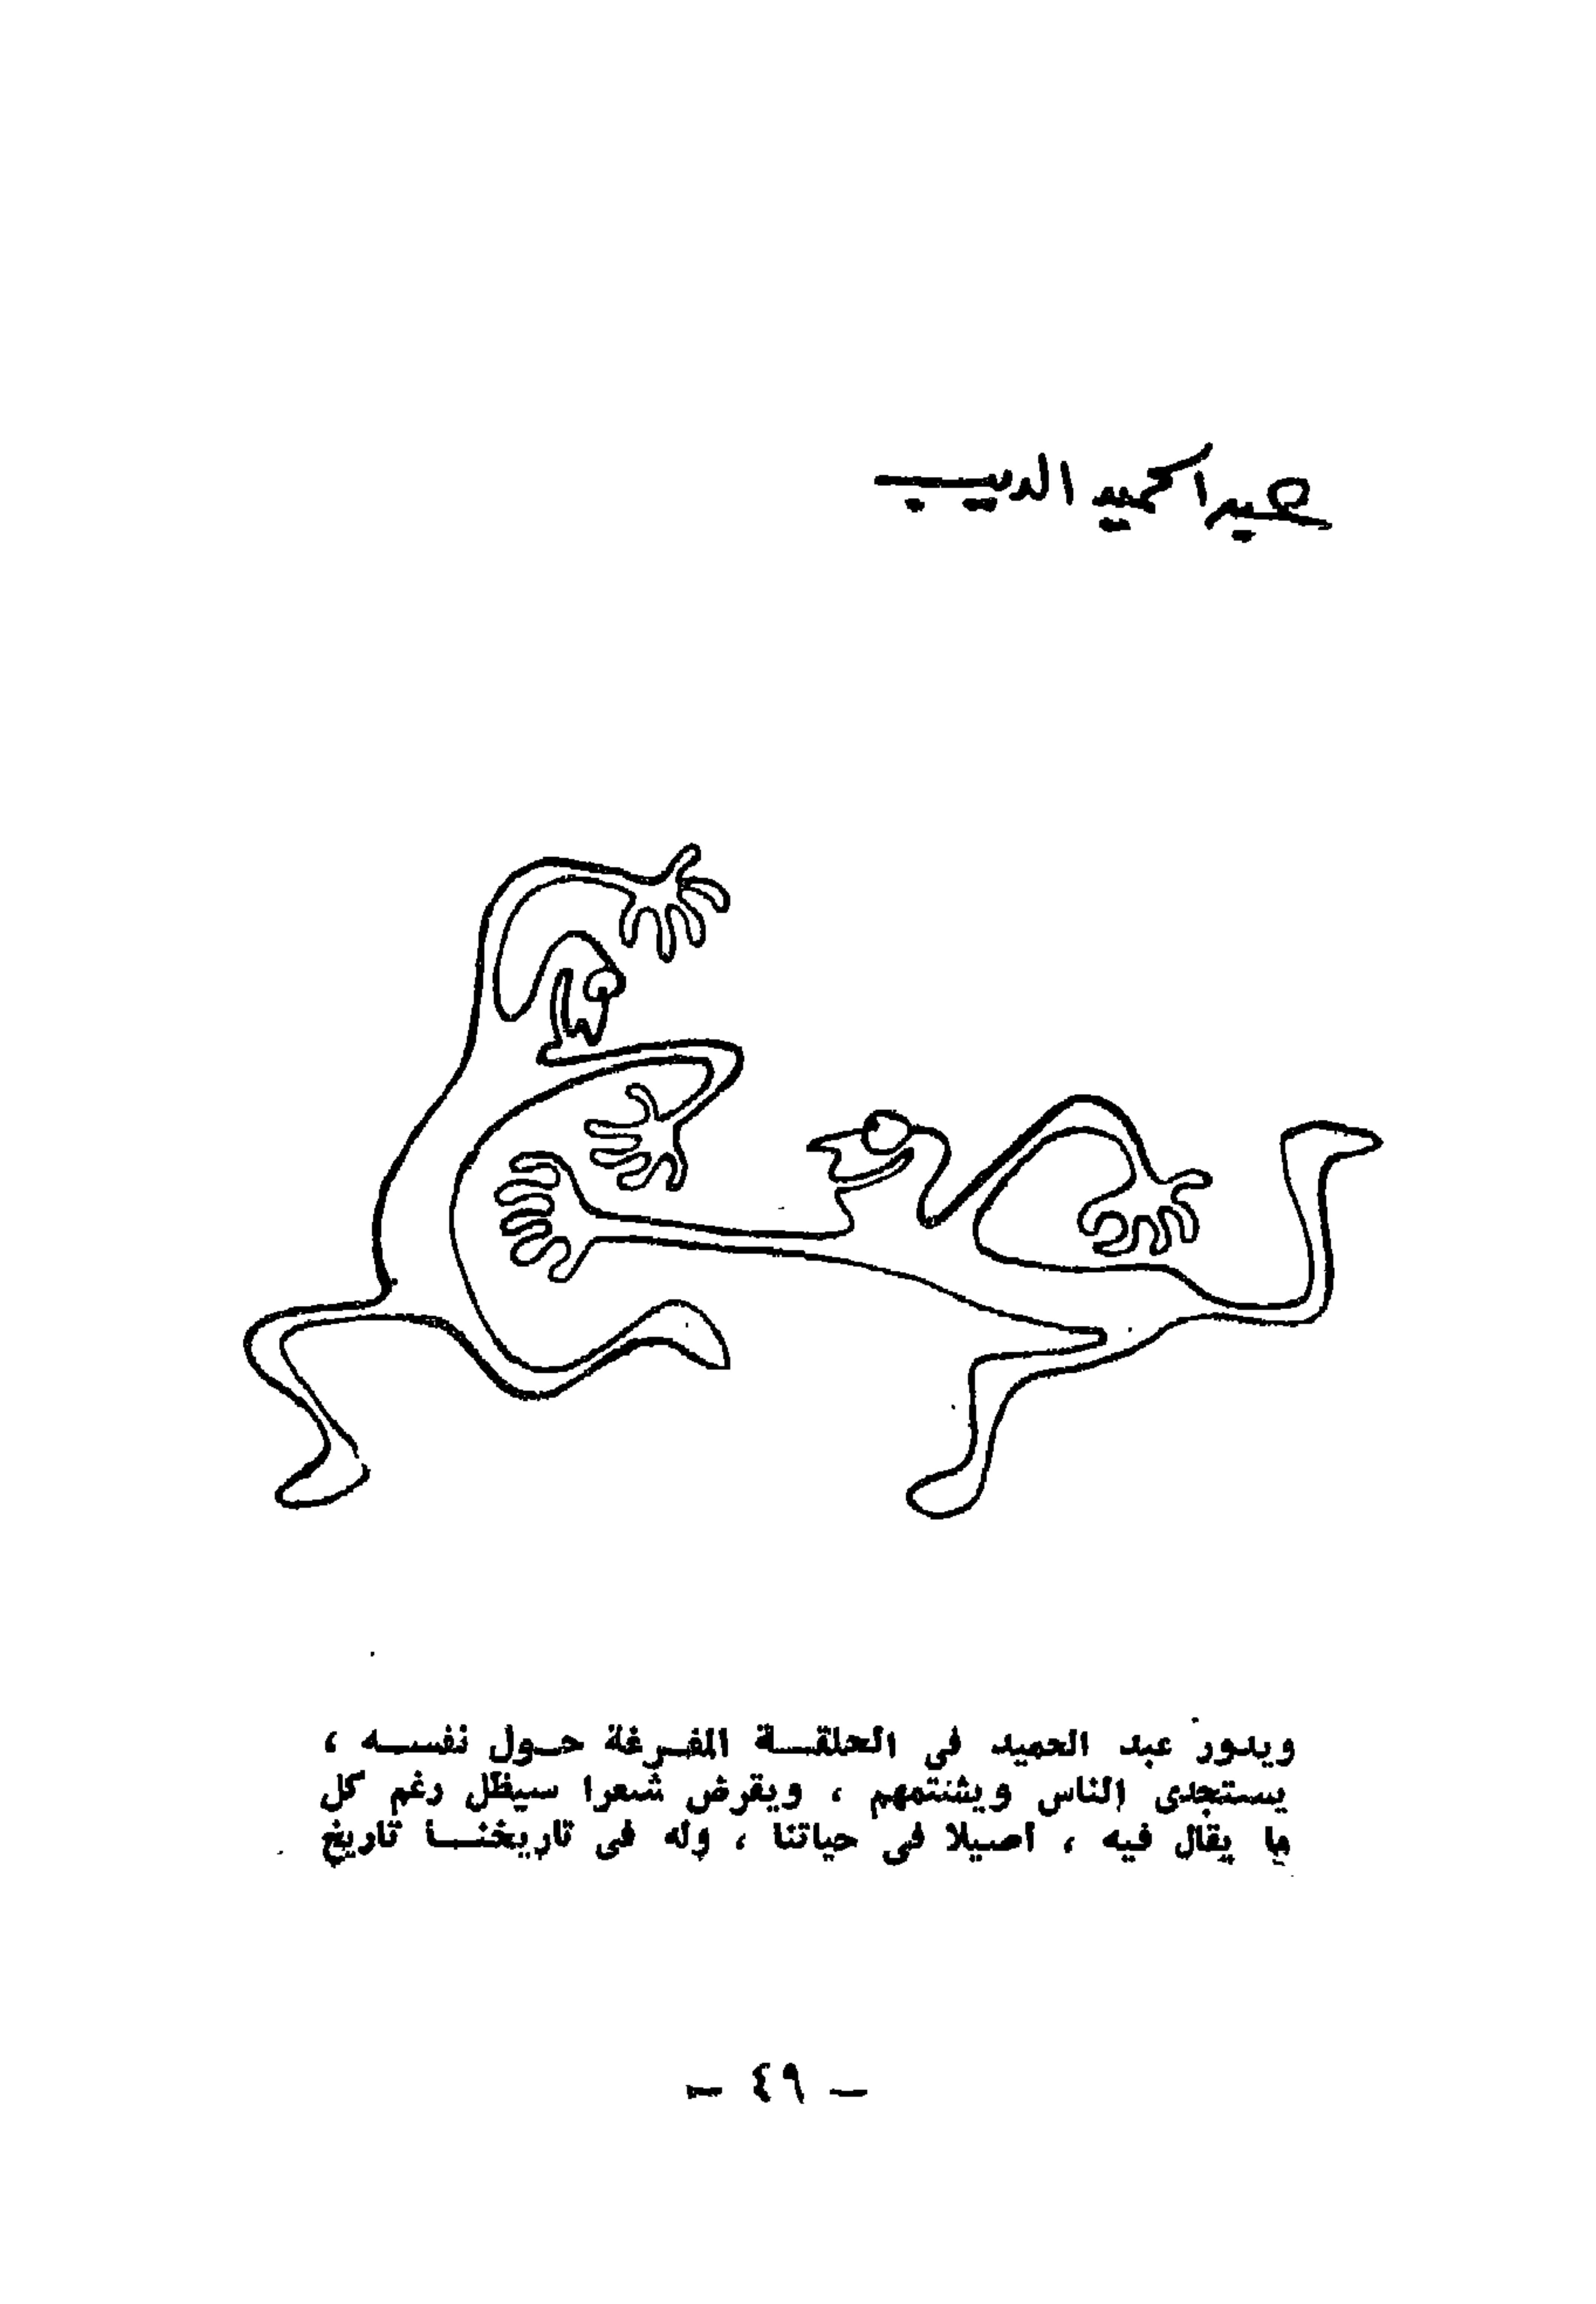 عبد الحميد الديب
ويدور عبد الحميد في الحلقة المفرغة حول نفسه ،
يستجدى الناس ويشتمهم ، ويقرض شعرا سيظل رغم كل
ما يقال فيه ، أصيلا في حياتنا ، وله فى تاريخنا تاريخ
— ٤٩ —